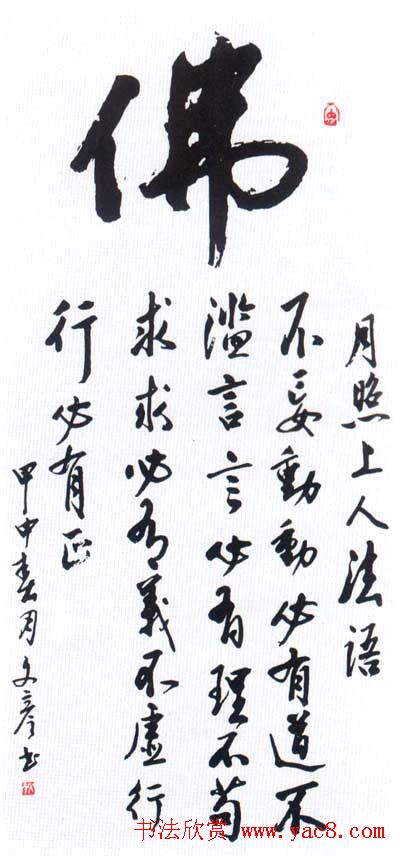 佛
月照上人法语
不妄動動必有道不
滥言言必有理不苟
求求必有義不虚行
行必有正
甲申春月文彦书
书法欣赏 www.yac8.com